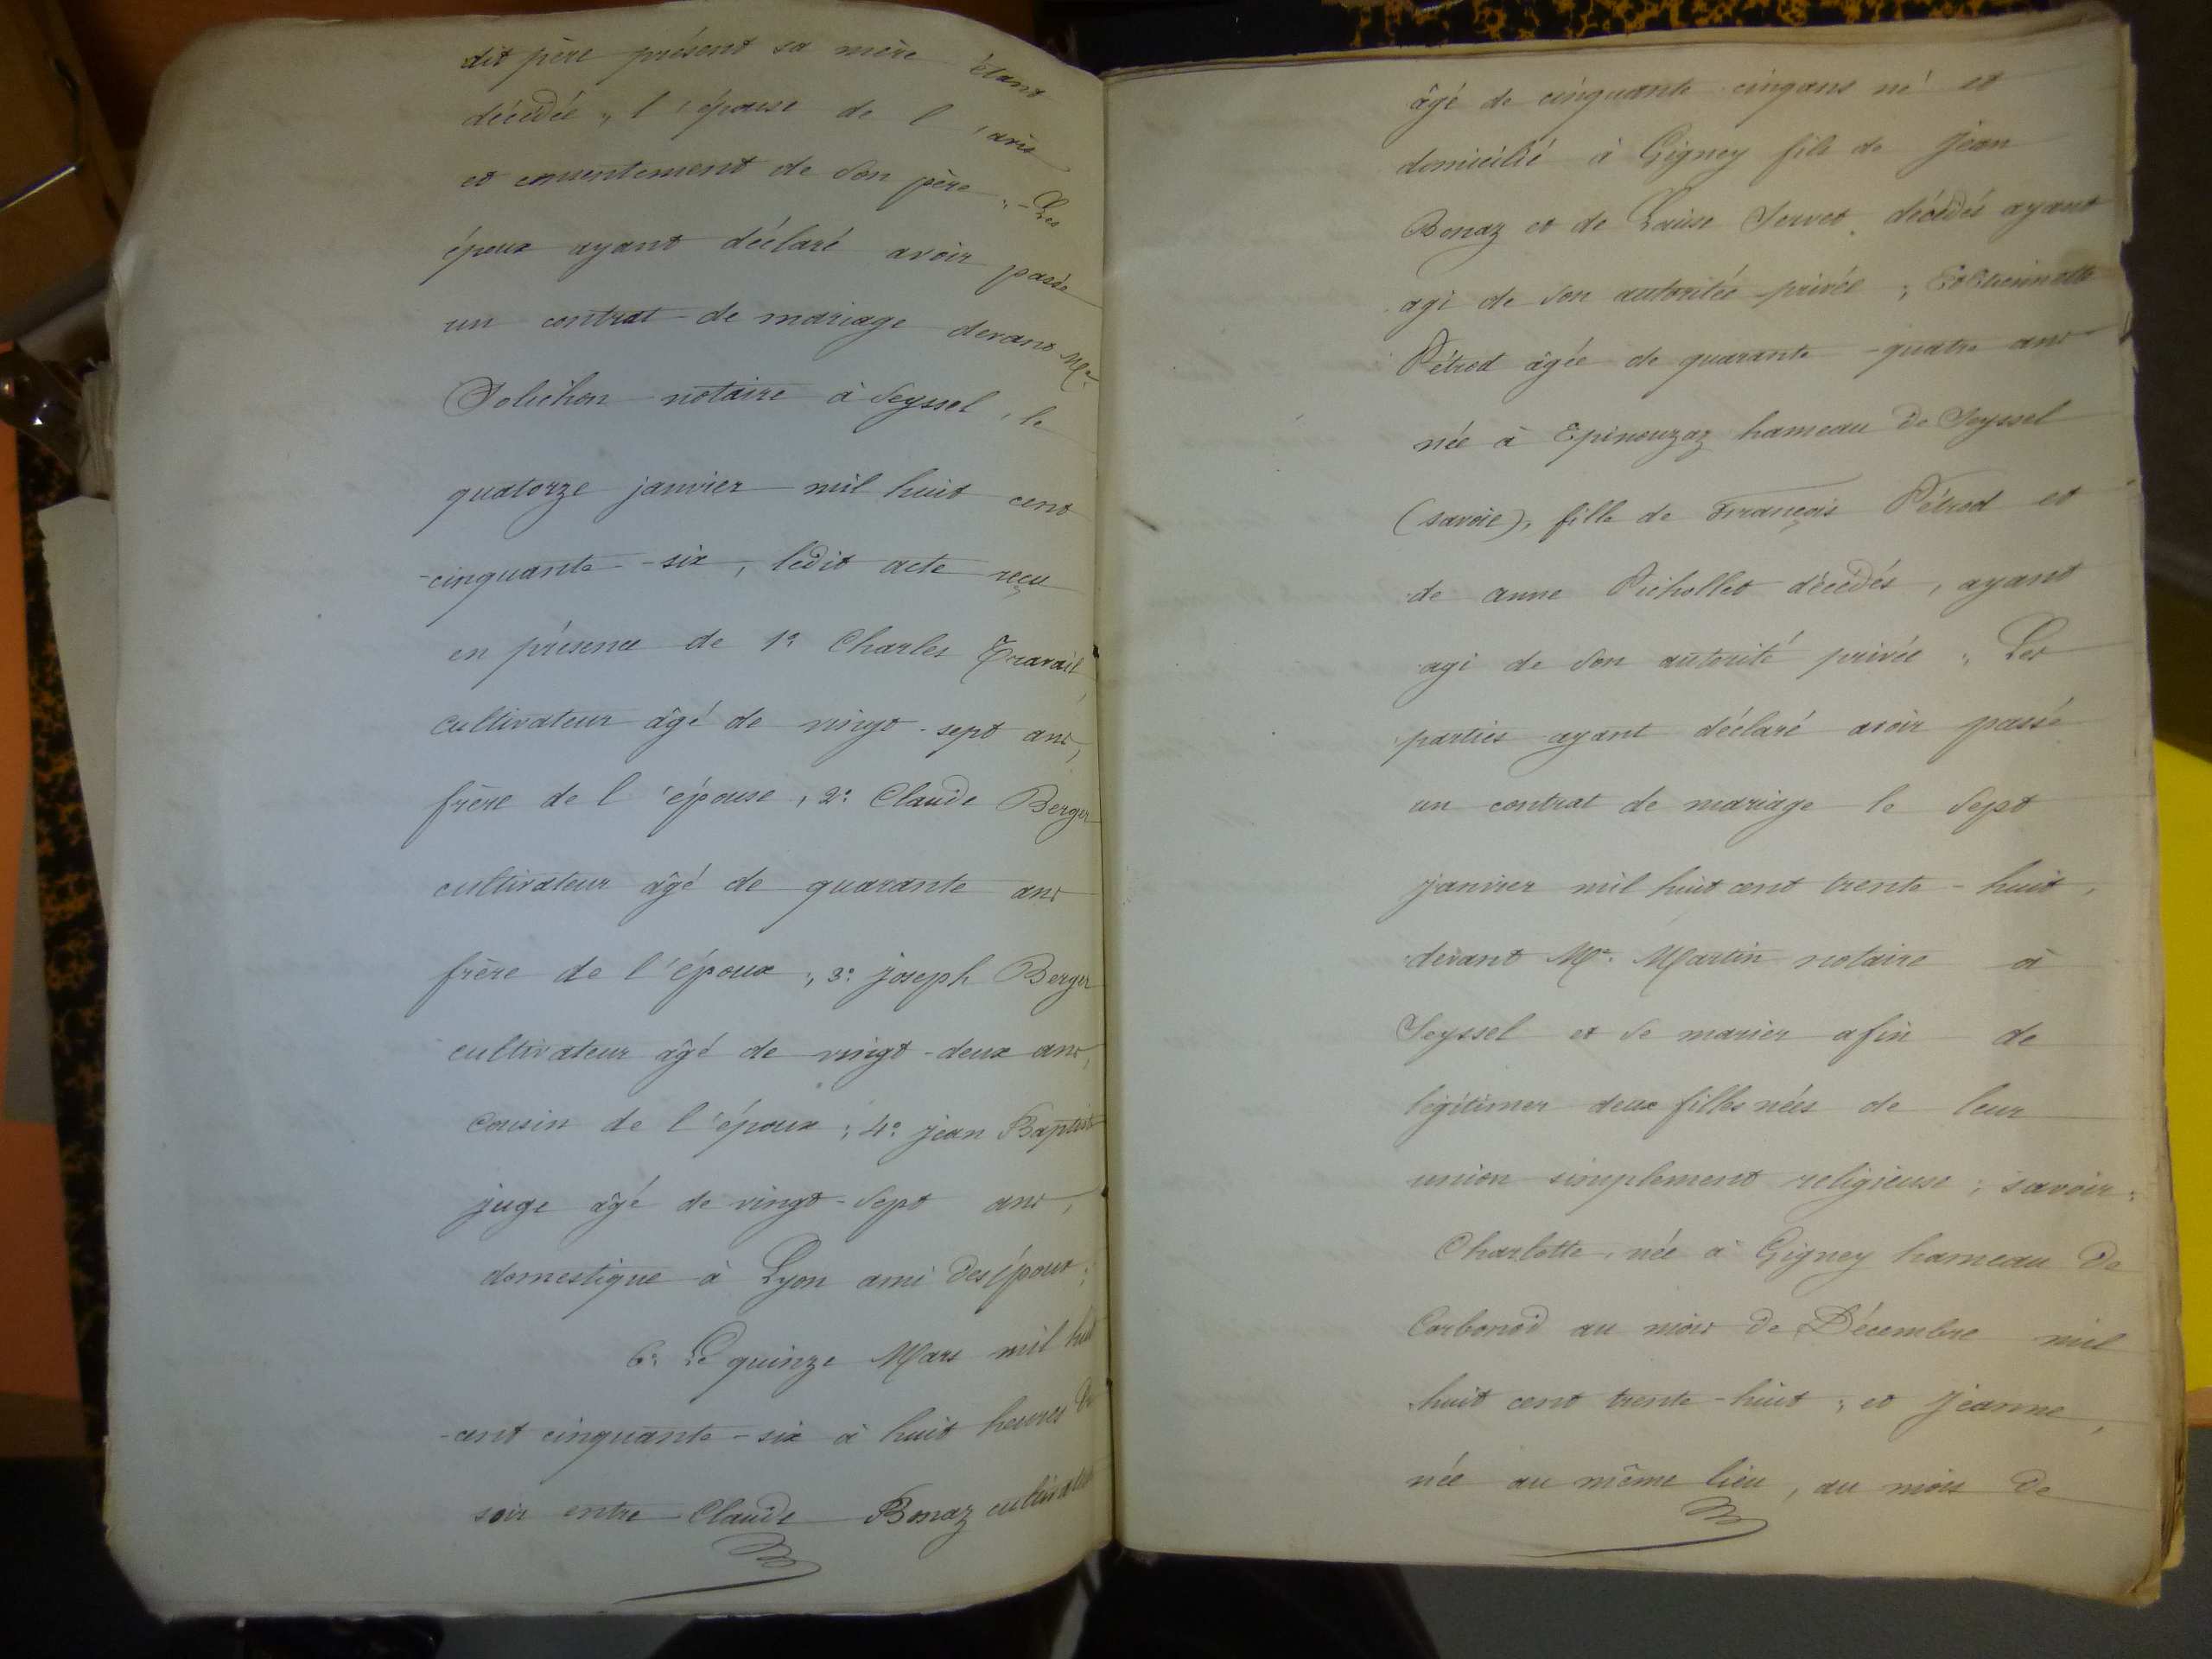 dit père présent sa mère étant
décédée, l'épouse de l'avis
et consentement de son père ;- Les
époux ayant déclaré avoir passé
un contrat de mariage devant Me.
notaire à Seyssel, le
quatorze janvier mil huit cent
cinquante-six, ledit acte reçu
en présence de 1º Charles Travail,
cultivateur âgé de vingt-sept ans,
frère de l'épouse, 2º Claude Berger
cultivateur âgé de quarante ans
frère de l'époux ; 3º joseph Berger
cultivateur âgé de vingt-deux ans,
cousin de l'époux ; 4º jean Baptiste
juge âgé de vingt-sept ans,
domestique à Lyon ami des époux ;
6º Le quinze Mars mil huit
cent cinquante-six à huit heures du
soir entre Claude Bonaz cultivateur
âgé de cinquante cinq ans né et
domicilié à Gigney fils de Jean
Bonaz et de Louise Servet décédés ayant
agi de son autoritée privée ;
Pétrod âgée de quarante-quatre ans
née à Epinouzaz hameau de Seyssel
(savoie), fille de François Pétrod et
de anne Pichollet décédés, ayant
agi de son autorité privée ; Les
parties ayant déclaré avoir passé
un contrat de mariage le sept
janvier mil huit cent trente-huit,
devant Me. Martin notaire à
Seyssel et se marier afin de
légitimer deux filles nées de leur
union simplement religieuse ; savoir :
Charlotte, née à Gigney hameau de
Corbonod au mois de Décembre mil
huit cent trente-huit ; et jeanne,
née au même lieu, au mois de